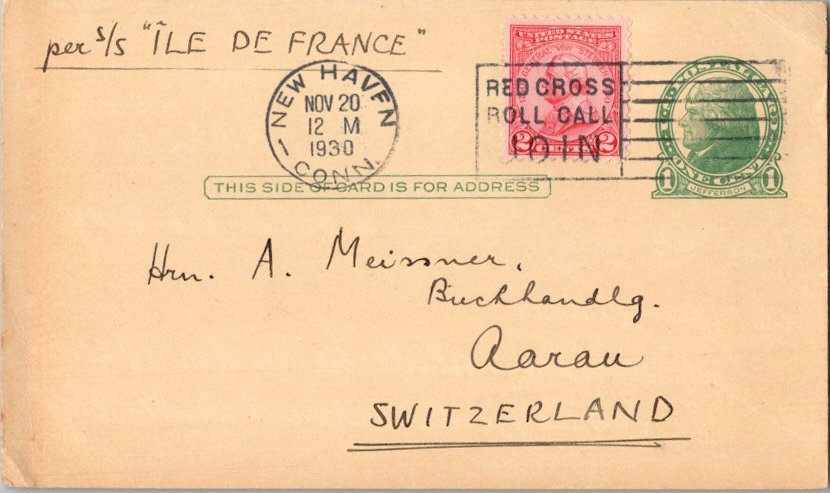 per s/s "ÎLE DE FRANCE"
NEW HAVEN
NOV 20
12 M
1930
CONN.
UNITED STATES
POSTAGE
GENERAL VON STEUBEN
2 CENTS 2
RED CROSS
ROLL CALL
JOIN
1 JEFFERSON 1
THIS SIDE OF CARD IS FOR ADDRESS
Hrn. A. Meissner,
Buchhandlg.
Aarau
SWITZERLAND